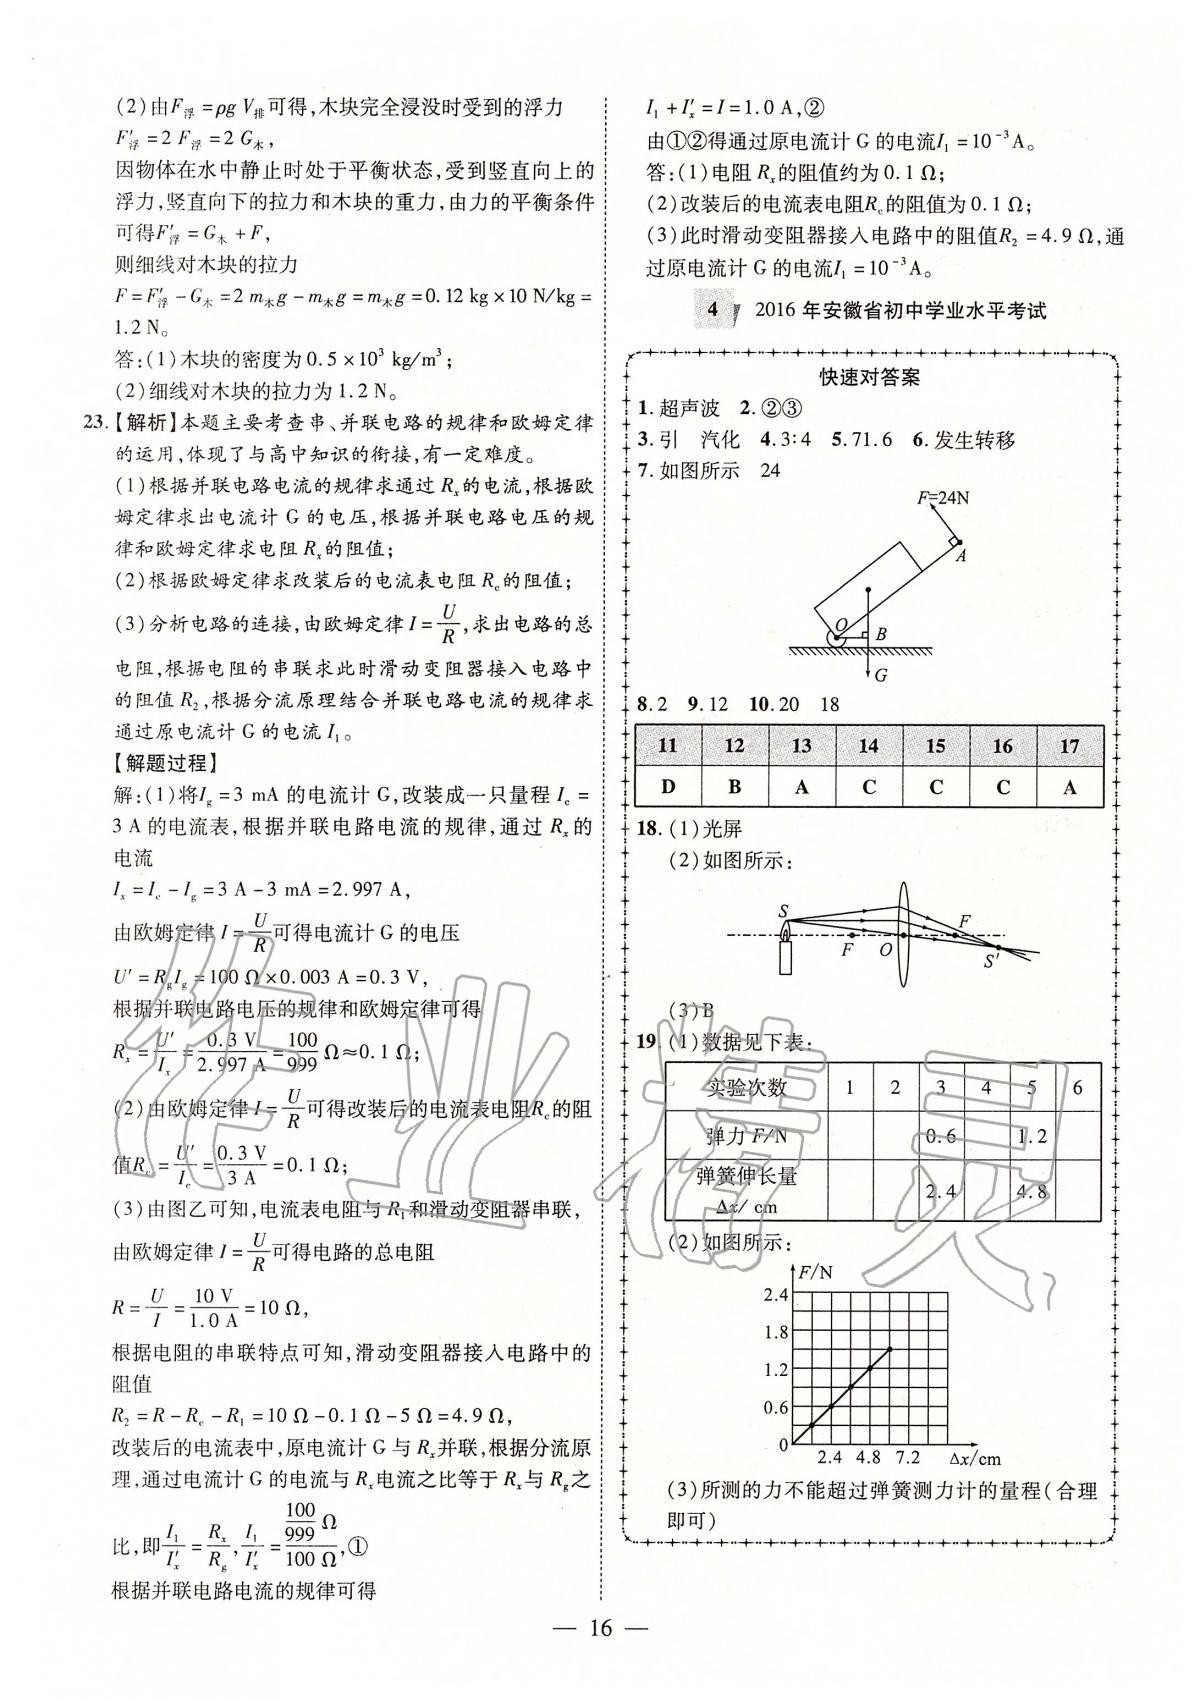 (2)由F浮=ρg V排可得,木块完全浸没时受到的浮力
F′浮=2 F浮=2 G木,
因物体在水中静止时处于平衡状态,受到竖直向上的
浮力,竖直向下的拉力和木块的重力,由力的平衡条件
可得F′浮=G木+F,
则细线对木块的拉力
F=F′浮-G木=2 m木g-m木g=m木g=0.12 kg×10 N/kg=
1.2 N。
答:(1)木块的密度为0.5×10³ kg/m³;
(2)细线对木块的拉力为1.2 N。
23.【解析】本题主要考查串、并联电路的规律和欧姆定律
的运用,体现了与高中知识的衔接,有一定难度。
(1)根据并联电路电流的规律求通过 Rx的电流,根据欧
姆定律求出电流计 G 的电压,根据并联电路电压的规
律和欧姆定律求电阻 Rx的阻值;
(2)根据欧姆定律求改装后的电流表电阻 Rc的阻值;
(3)分析电路的连接,由欧姆定律 I=U/R,求出电路的总
电阻,根据电阻的串联求此时滑动变阻器接入电路中
的阻值 R2,根据分流原理结合并联电路电流的规律求
通过原电流计 G 的电流 I1。
【解题过程】
解:(1)将Ig=3 mA 的电流计 G,改装成一只量程 Ic=
3 A 的电流表,根据并联电路电流的规律,通过 Rx的
电流
Ix=Ic-Ig=3 A-3 mA=2.997 A,
由欧姆定律 I=U/R可得电流计 G 的电压
U′=RgIg=100 Ω×0.003 A=0.3 V,
根据并联电路电压的规律和欧姆定律可得
Rx=U′/Ix=0.3 V/2.997 A=100/999 Ω≈0.1 Ω;
(2)由欧姆定律 I=U/R可得改装后的电流表电阻Rc的阻
值Rc=U′/Ic=0.3 V/3 A=0.1 Ω;
(3)由图乙可知,电流表电阻与 R1和滑动变阻器串联,
由欧姆定律 I=U/R可得电路的总电阻
R=U/I=10 V/1.0 A=10 Ω,
根据电阻的串联特点可知,滑动变阻器接入电路中的
阻值
R2=R-Rc-R1=10 Ω-0.1 Ω-5 Ω=4.9 Ω,
改装后的电流表中,原电流计 G 与 Rx并联,根据分流原
理,通过电流计 G 的电流与 Rx电流之比等于 Rx与 Rg之
比,即I1/I′x=Rx/Rg,I1/I′x=(100/999 Ω)/100 Ω,①
根据并联电路电流的规律可得
I1+I′x=I=1.0 A,②
由①②得通过原电流计 G 的电流I1=10⁻³A。
答:(1)电阻 Rx的阻值约为 0.1 Ω;
(2)改装后的电流表电阻Rc的阻值为 0.1 Ω;
(3)此时滑动变阻器接入电路中的阻值R2=4.9 Ω,通
过原电流计 G 的电流I1=10⁻³A。
4 2016 年安徽省初中学业水平考试
快速对答案
1. 超声波 2. ②③
3. 引 汽化 4. 3:4 5. 71.6 6. 发生转移
7. 如图所示 24
F=24N
A
O
B
G
8. 2 9. 12 10. 20 18
11 12 13 14 15 16 17
D B A C C C A
18. (1)光屏
(2)如图所示:
S
F
F O
S′
(3)B
19. (1)数据见下表:
实验次数 1 2 3 4 5 6
弹力 F/N 0.6 1.2
弹簧伸长量
Δx/ cm 2.4 4.8
(2)如图所示:
F/N
2.4
1.8
1.2
0.6
0
2.4 4.8 7.2 Δx/cm
(3)所测的力不能超过弹簧测力计的量程(合理
即可)
— 16 —
作业精灵